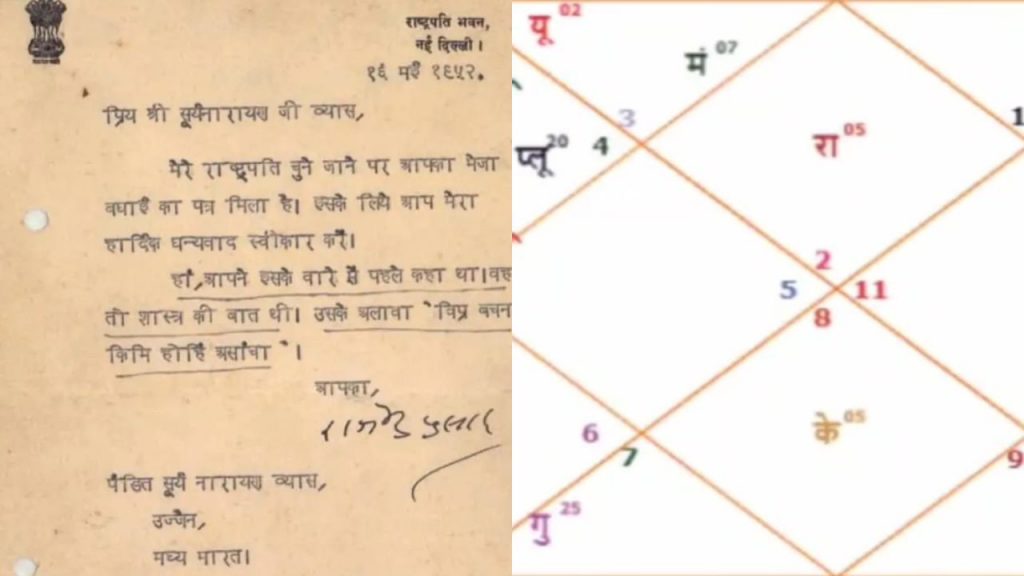 राष्ट्रपति भवन,
नई दिल्ली।
१६ मई १९५२.
प्रिय श्री सूर्यनारायण जी व्यास,
मेरे राष्ट्रपति चुने जाने पर आपका भेजा
बधाई का पत्र मिला है। इसके लिये आप मेरा
हार्दिक धन्यवाद स्वीकार करें।
हां, आपने इसके बारे में पहले कहा था। वह
तो शास्त्र की बात थी। उसके अलावा "विप्र वचन
किमि होहिं असांचा"।
आपका,
पंडित सूर्य नारायण व्यास,
उज्जैन,
मध्य भारत।
यू 02
मं 07
3
1
प्लू 20
4
रा 05
2
5
11
8
के 05
6
7
9
गु 25